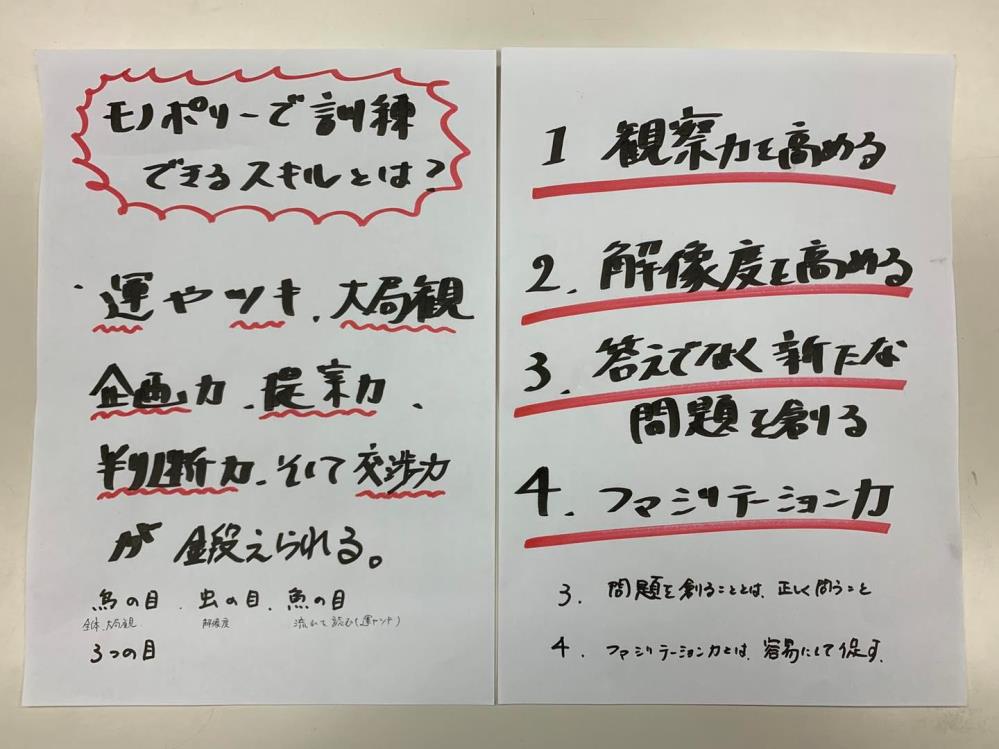 モノポリーで訓練
できるスキルとは?
運やツキ、大局観
企画力、提案力、
判断力、そして交渉力
が鍛えられる。
鳥の目、虫の目、魚の目
全体、大局観 解像度 流れを読む(運やツキ)
3つの目
1 観察力を高める
2. 解像度を高める
3. 答えでなく新たな
問題を創る
4. ファシリテーション力
3. 問題を創ることとは、正しく問うこと
4. ファシリテーション力とは、容易にして促す。